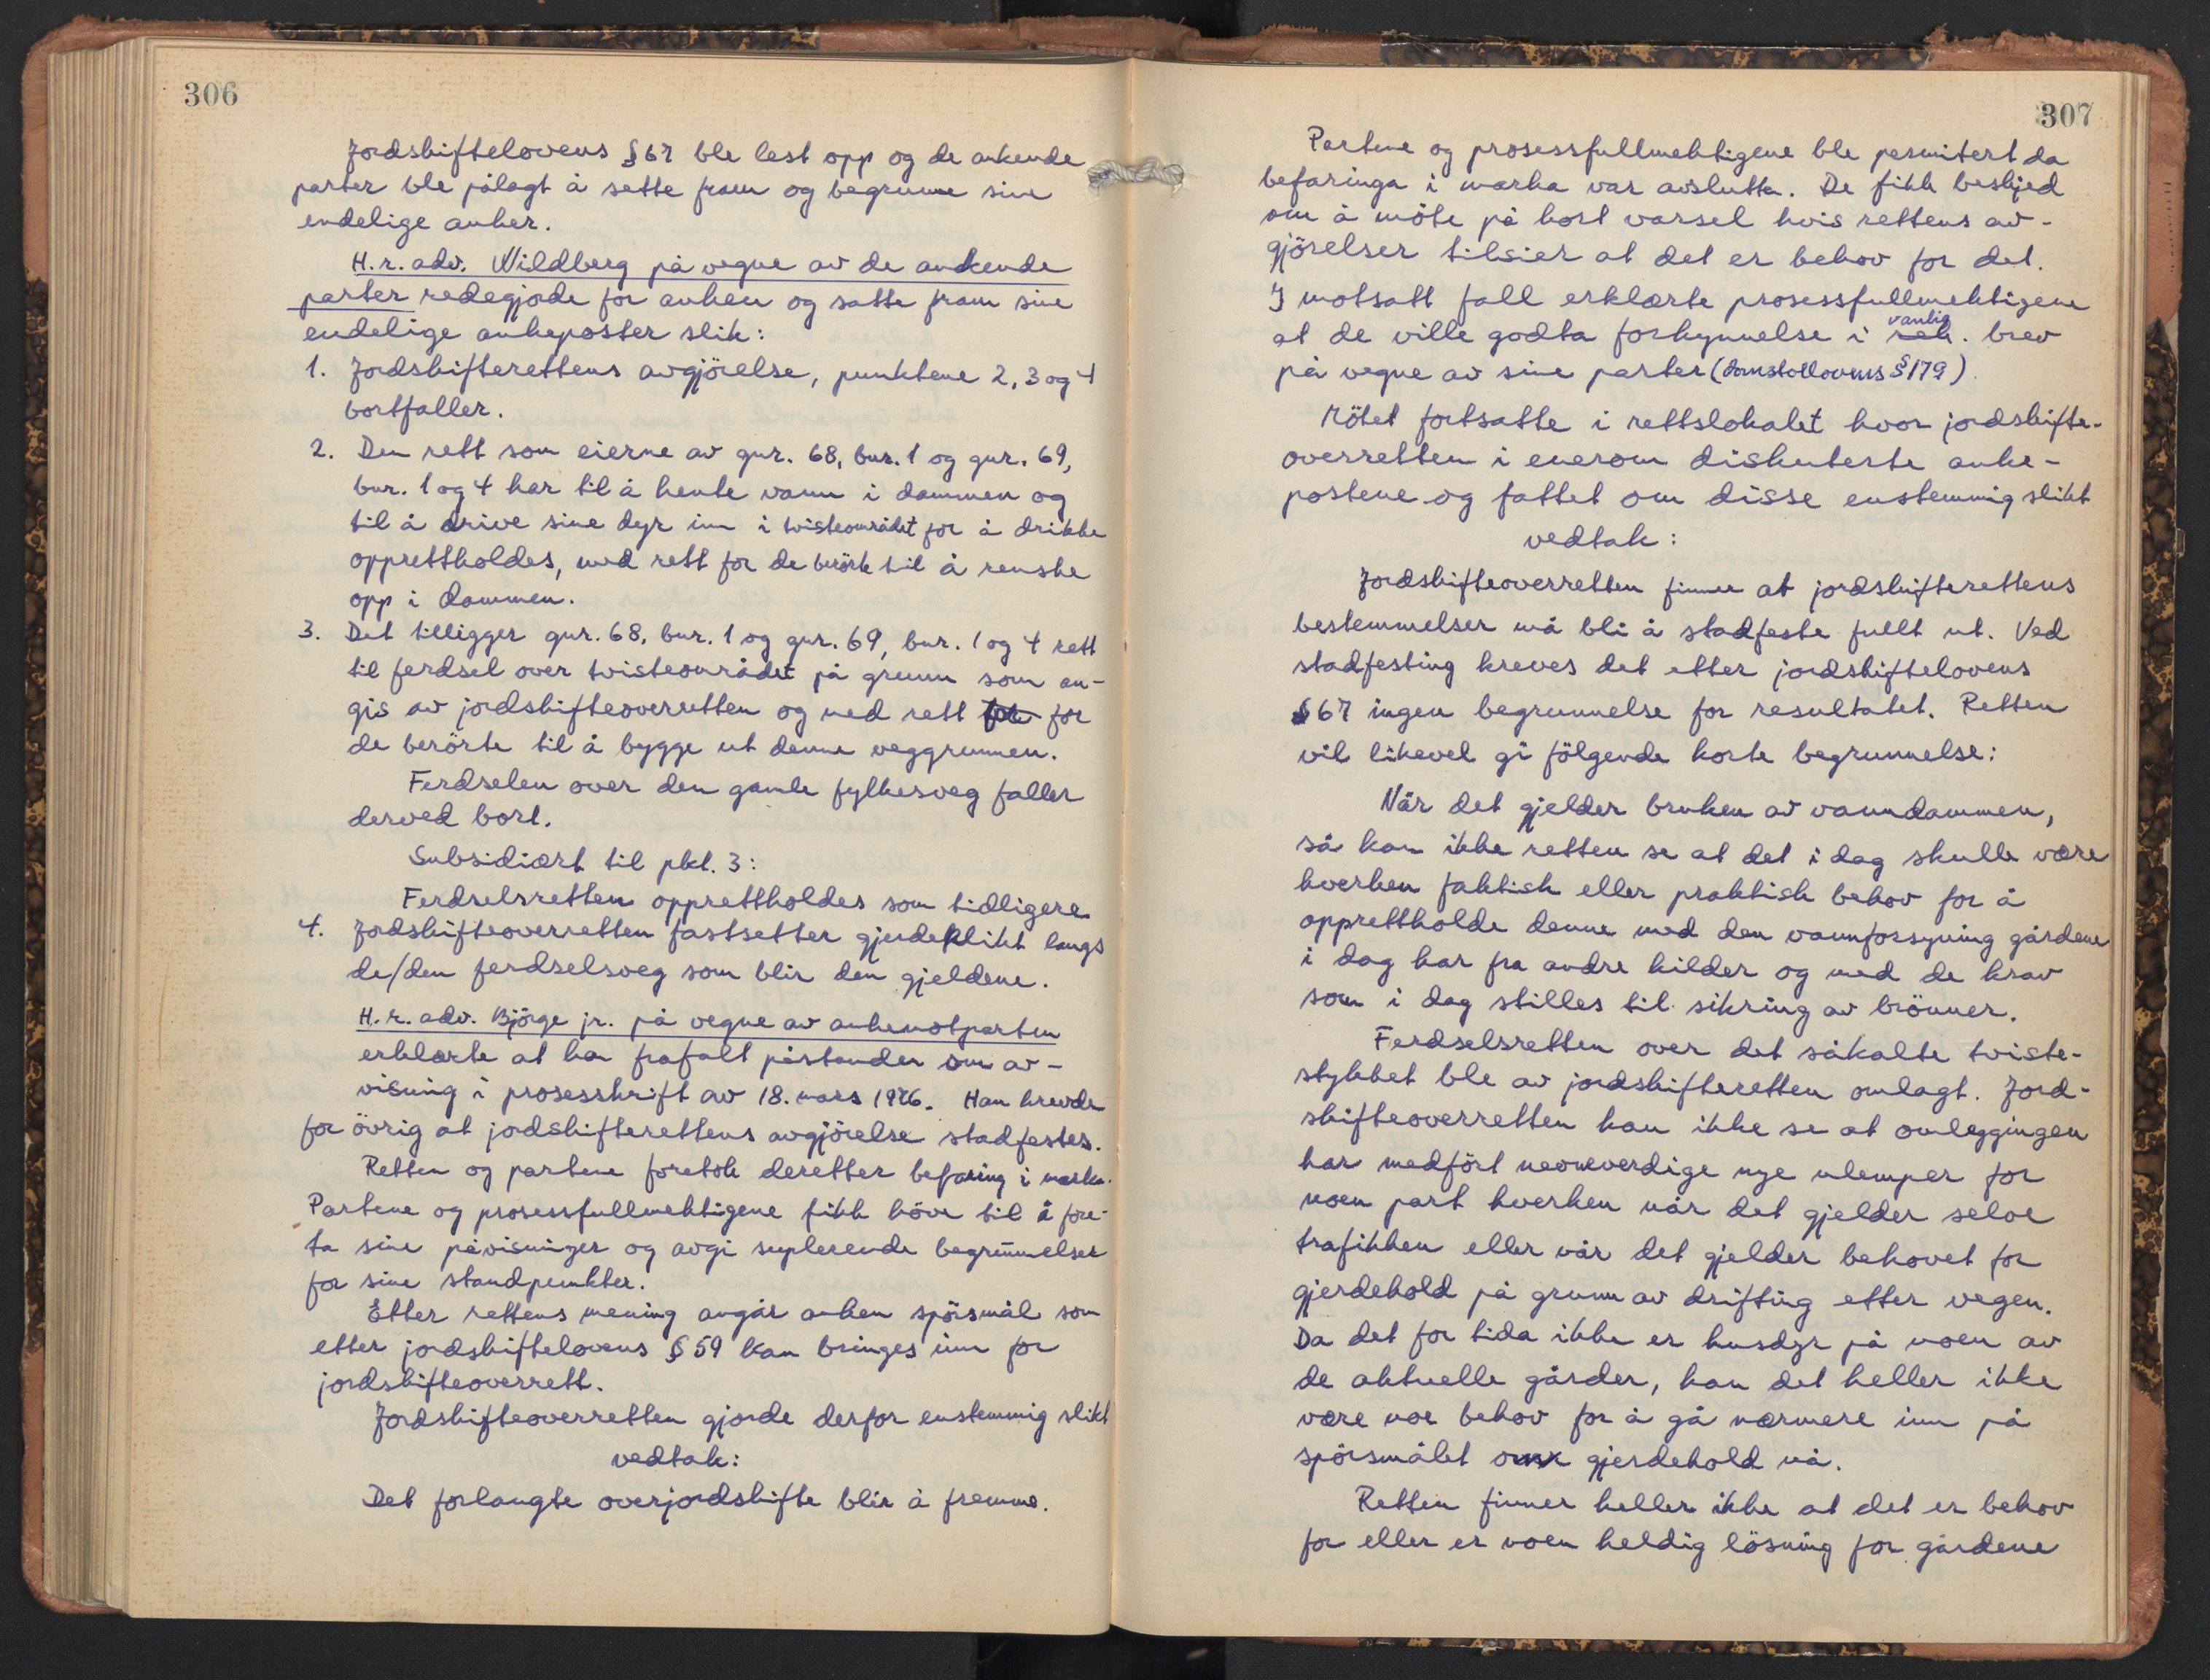 306
Jordskiftelovens §67 ble lest opp og de ankende
parter ble pålagt å sette fram og begrunne sine
endelige anker.
H.r.adv. Wildberg på vegne av de ankende
parter redegjorde for anken og satte fram sine
endelige ankeposter slik:
1. Jordskifterettens avgjörelse, punktene 2, 3 og 4
bortfaller.
2. Den rett som eierne av gnr. 68, bnr. 1 og gnr. 69,
bnr. 1 og 4 har til å hente vann i dammen og
til å drive sine dyr inn i tvisteområdet for å drikke
opprettholdes, med rett for de berörte til å renske
opp i dammen.
3. Det tilligger gnr. 68, bnr. 1 og gnr. 69, bnr. 1 og 4 rett
til ferdsel over tvisteområdet på grunn som an-
gis av jordskifteoverretten og med rett for
de berörte til å bygge ut denne veggrunnen.
Ferdselen over den gamle fylkesveg faller
derved bort.
Subsidiært til pkt. 3:
Ferdselsretten opprettholdes som tidligere.
4. Jordskifteoverretten fastsetter gjerdeplikt langs
de/den ferdselsveg som blir den gjeldene.
H.r.adv. Björge jr. på vegne av ankemotparten
erklærte at han frafalt påstanden om av-
visning i prosesskrift av 18. mars 1976. Han krevde
for övrig at jordskifterettens avgjörelse stadfestes.
Retten og partene foretok deretter befaring i marka.
Partene og prosessfullmektigene fikk höve til å fore-
ta sine påvisninger og avgi suplerende begrunnelser
for sine standpunkter.
Etter rettens mening avgår anken spörsmål som
etter jordskiftelovens § 59 kan bringes inn for
jordskifteoverrett.
Jordskifteoverretten gjorde derfor enstemmig slikt
vedtak:
Det forlangte overjordskifte blir å fremme.
307
Partene og prosessfullmektigene ble permitert da
befaringa i marka var avslutta. De fikk beskjed
om å möte på kort varsel hvis rettens av-
gjörelser tilsier at det er behov for det.
I motsatt fall erklærte prosessfullmektigene
at de ville godta forkynnelse i vanlig rek. brev
på vegne av sine parter (domstollovens §179).
Mötet fortsatte i rettslokalet hvor jordskifte-
overretten i enerom diskuterte anke-
postene og fattet om disse enstemmig slikt
vedtak:
Jordskifteoverretten finner at jordskifterettens
bestemmelser må bli å stadfeste fullt ut. Ved
stadfesting kreves det etter jordskiftelovens
§67 ingen begrunnelse for resultatet. Retten
vil likevel gi fölgende korte begrunnelse:
Når det gjelder bruken av vanndammen,
så kan ikke retten se at det i dag skulle være
hverken faktisk eller praktisk behov for å
opprettholde denne med den vannforsyning gårdene
i dag har fra andre kilder og med de krav
som i dag stilles til sikring av brönner.
Ferdselsretten over det såkalte tviste-
stykket ble av jordskifteretten omlagt. Jord-
skifteoverretten kan ikke se at omleggingen
har medfört nevneverdige nye ulemper for
noen part hverken når det gjelder selve
trafikken eller når det gjelder behovet for
gjerdehold på grunn av drifting etter vegen.
Da det for tida ikke er husdyr på noen av
de aktuelle gårder, kan det heller ikke
være noe behov for å gå nærmere inn på
spörsmålet om gjerdehold nå.
Retten finner heller ikke at det er behov
for eller er noen heldig lösning for gårdene